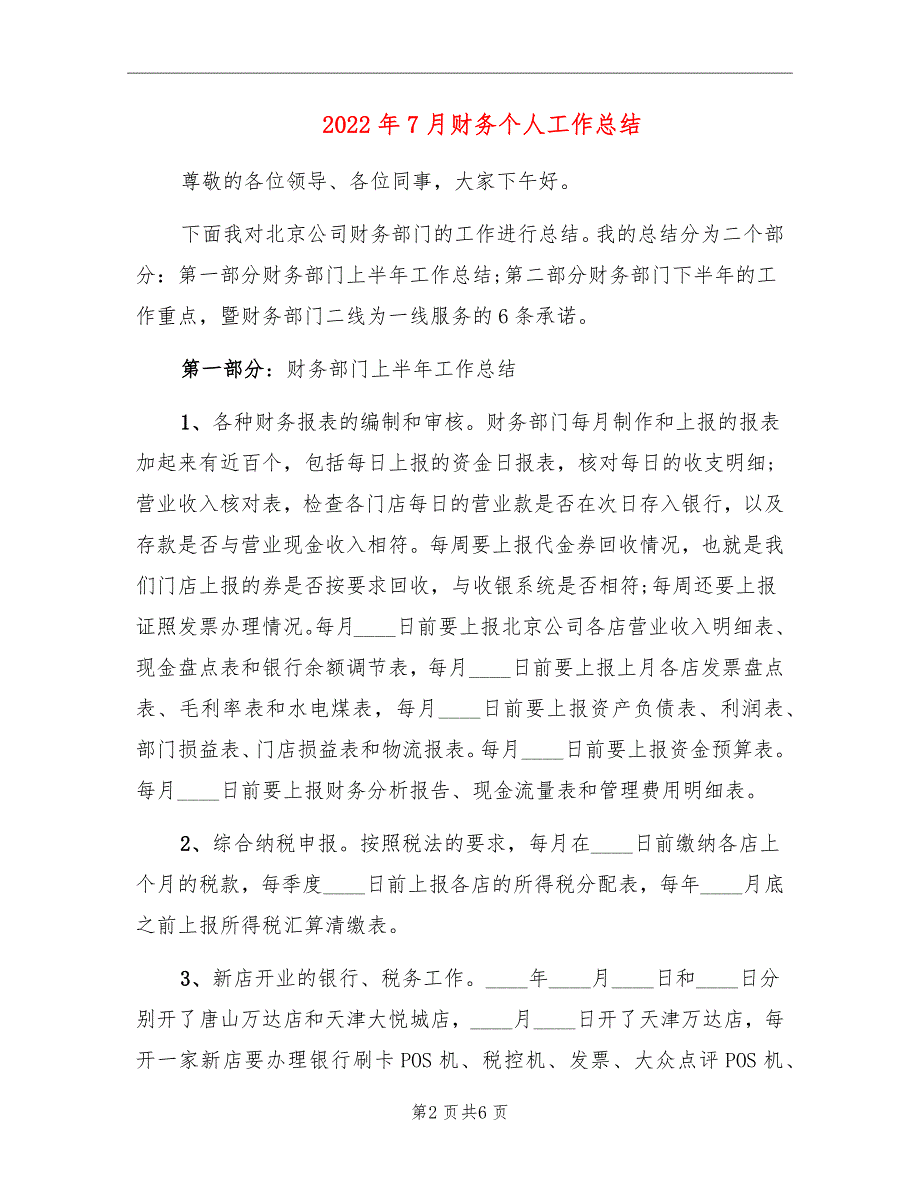 2022 年 7 月财务个人工作总结
尊敬的各位领导、各位同事，大家下午好。
下面我对北京公司财务部门的工作进行总结。我的总结分为二个部
分：第一部分财务部门上半年工作总结;第二部分财务部门下半年的工
作重点，暨财务部门二线为一线服务的 6 条承诺。
第一部分：财务部门上半年工作总结
1、各种财务报表的编制和审核。财务部门每月制作和上报的报表
加起来有近百个，包括每日上报的资金日报表，核对每日的收支明细;
营业收入核对表，检查各门店每日的营业款是否在次日存入银行，以及
存款是否与营业现金收入相符。每周要上报代金券回收情况，也就是我
们门店上报的券是否按要求回收，与收银系统是否相符;每周还要上报
证照发票办理情况。每月____日前要上报北京公司各店营业收入明细表、
现金盘点表和银行余额调节表，每月____日前要上报上月各店发票盘点
表、毛利率表和水电煤表，每月____日前要上报资产负债表、利润表、
部门损益表、门店损益表和物流报表。每月____日前要上报资金预算表。
每月____日前要上报财务分析报告、现金流量表和管理费用明细表。
2、综合纳税申报。按照税法的要求，每月在____日前缴纳各店上
个月的税款，每季度____日前上报各店的所得税分配表，每年____月底
之前上报所得税汇算清缴表。
3、新店开业的银行、税务工作。____年____月____日和____日分
别开了唐山万达店和天津大悦城店，____月____日开了天津万达店，每
开一家新店要办理银行刷卡 POS 机、税控机、发票、大众点评 POS 机、
第 2 页 共 6 页